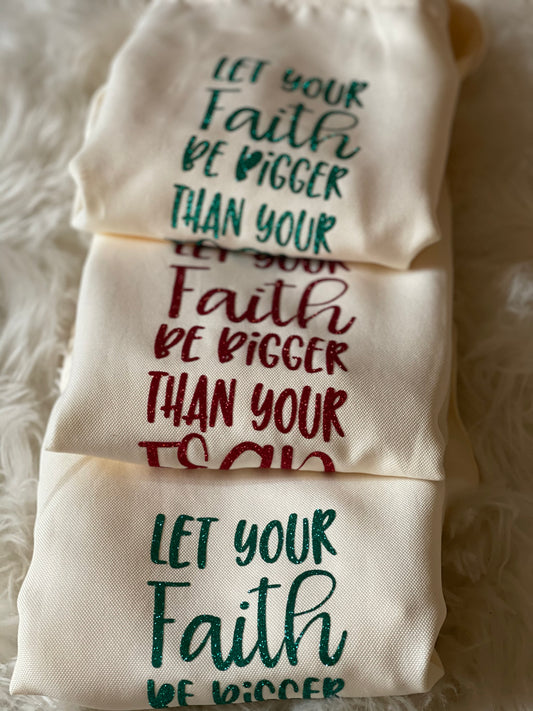 LET YOUR
Faith
BE BIGGER
THAN YOUR
LET YOUR
Faith
BE BIGGER
THAN YOUR
LET YOUR
Faith
BE BIGGER